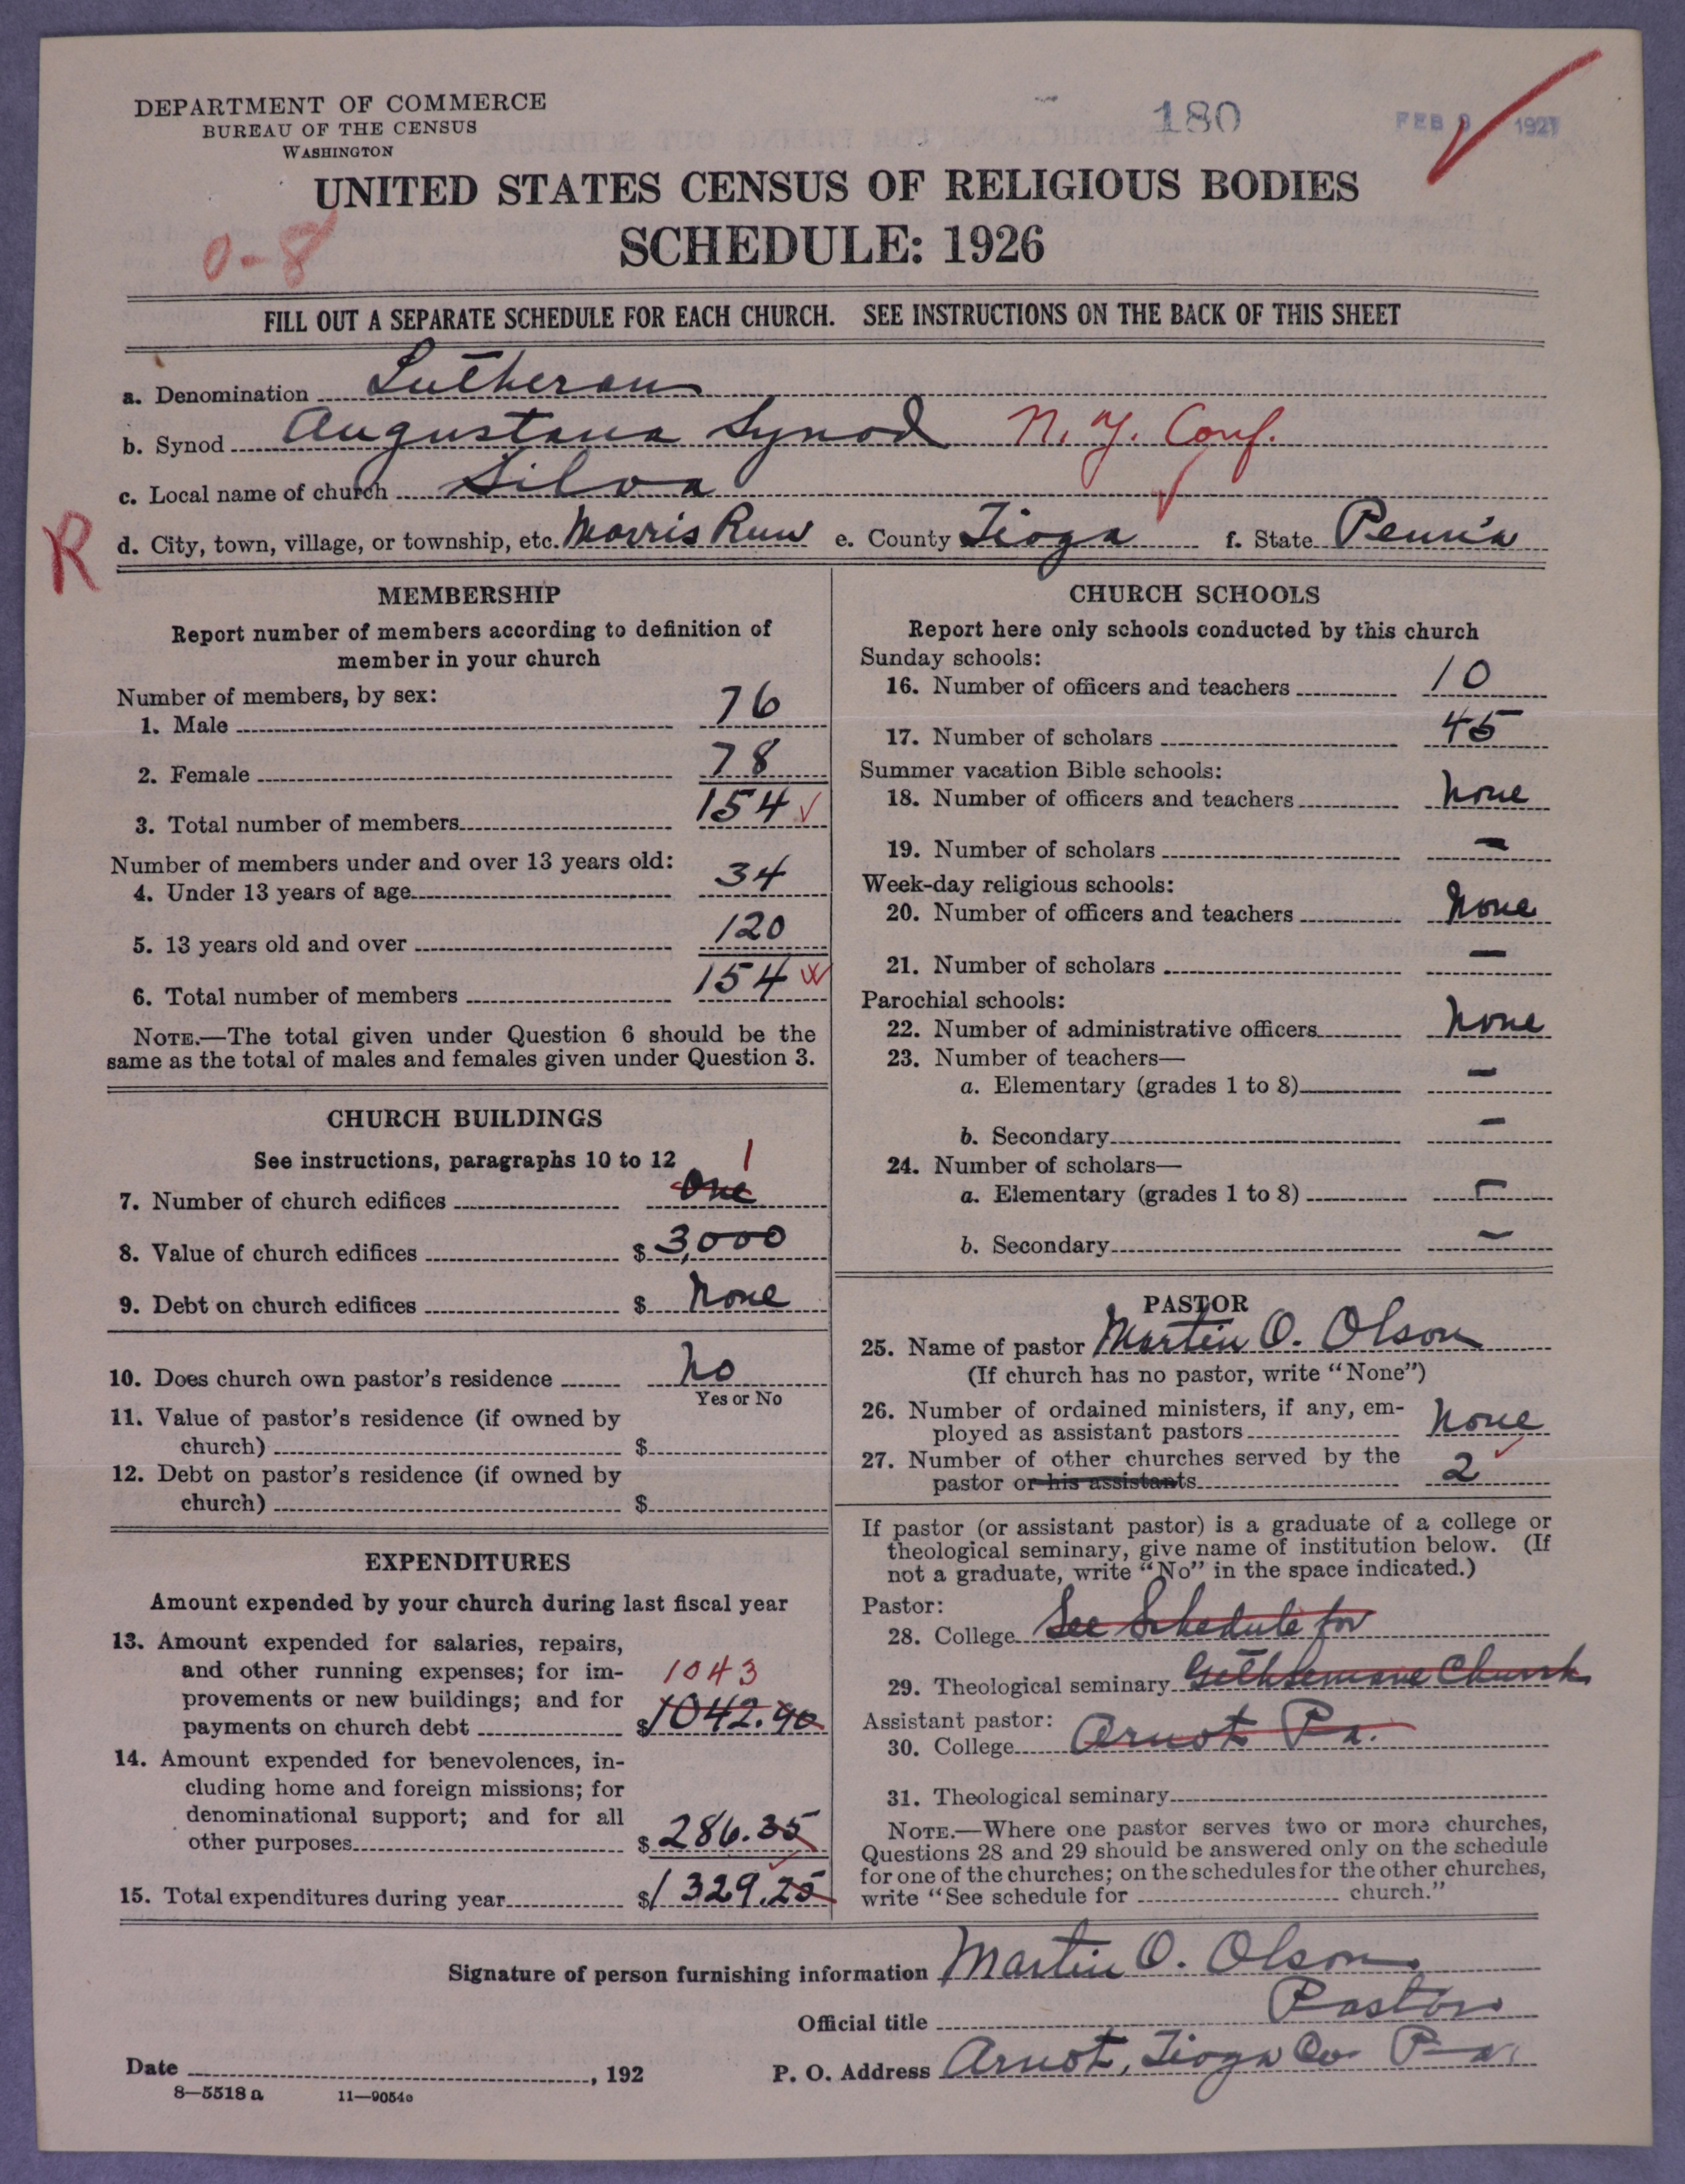 DEPARTMENT OF COMMERCE
BUREAU OF THE CENSUS
WASHINGTON
180
FEB 9 1927
UNITED STATES CENSUS OF RELIGIOUS BODIES
SCHEDULE: 1926
0-8
FILL OUT A SEPARATE SCHEDULE FOR EACH CHURCH. SEE INSTRUCTIONS ON THE BACK OF THIS SHEET
a. Denomination Lutheran
b. Synod Augustana Synod N. Y. Conf.
c. Local name of church Siloa
R
d. City, town, village, or township, etc. Morris Run e. County Tioga f. State Penn'a
MEMBERSHIP
Report number of members according to definition of
member in your church
Number of members, by sex:
1. Male 76
2. Female 78
3. Total number of members 154
Number of members under and over 13 years old:
4. Under 13 years of age 34
5. 13 years old and over 120
6. Total number of members 154
NOTE.—The total given under Question 6 should be the
same as the total of males and females given under Question 3.
CHURCH BUILDINGS
See instructions, paragraphs 10 to 12
1
7. Number of church edifices One
8. Value of church edifices $ 3,000
9. Debt on church edifices $ None
10. Does church own pastor's residence No
Yes or No
11. Value of pastor's residence (if owned by
church) $
12. Debt on pastor's residence (if owned by
church) $
EXPENDITURES
Amount expended by your church during last fiscal year
13. Amount expended for salaries, repairs,
and other running expenses; for im- 1043
provements or new buildings; and for
payments on church debt $1042.90
14. Amount expended for benevolences, in-
cluding home and foreign missions; for
denominational support; and for all
other purposes $ 286.35
15. Total expenditures during year $1329.25
CHURCH SCHOOLS
Report here only schools conducted by this church
Sunday schools:
16. Number of officers and teachers 10
17. Number of scholars 45
Summer vacation Bible schools:
18. Number of officers and teachers None
19. Number of scholars —
Week-day religious schools:
20. Number of officers and teachers None
21. Number of scholars —
Parochial schools:
22. Number of administrative officers None
23. Number of teachers—
a. Elementary (grades 1 to 8) —
b. Secondary —
24. Number of scholars—
a. Elementary (grades 1 to 8) —
b. Secondary —
PASTOR
25. Name of pastor Martin O. Olson
(If church has no pastor, write "None")
26. Number of ordained ministers, if any, em-
ployed as assistant pastors None
27. Number of other churches served by the
pastor or his assistants 2
If pastor (or assistant pastor) is a graduate of a college or
theological seminary, give name of institution below. (If
not a graduate, write "No" in the space indicated.)
Pastor:
28. College See Schedule for
29. Theological seminary Gethsemane Church
Assistant pastor:
30. College Arnot Pa.
31. Theological seminary
NOTE.—Where one pastor serves two or more churches,
Questions 28 and 29 should be answered only on the schedule
for one of the churches; on the schedules for the other churches,
write "See schedule for church."
Signature of person furnishing information Martin O. Olson
Official title Pastor
Date , 192 P. O. Address Arnot, Tioga Co. Pa.
8—5518 a 11—9054a